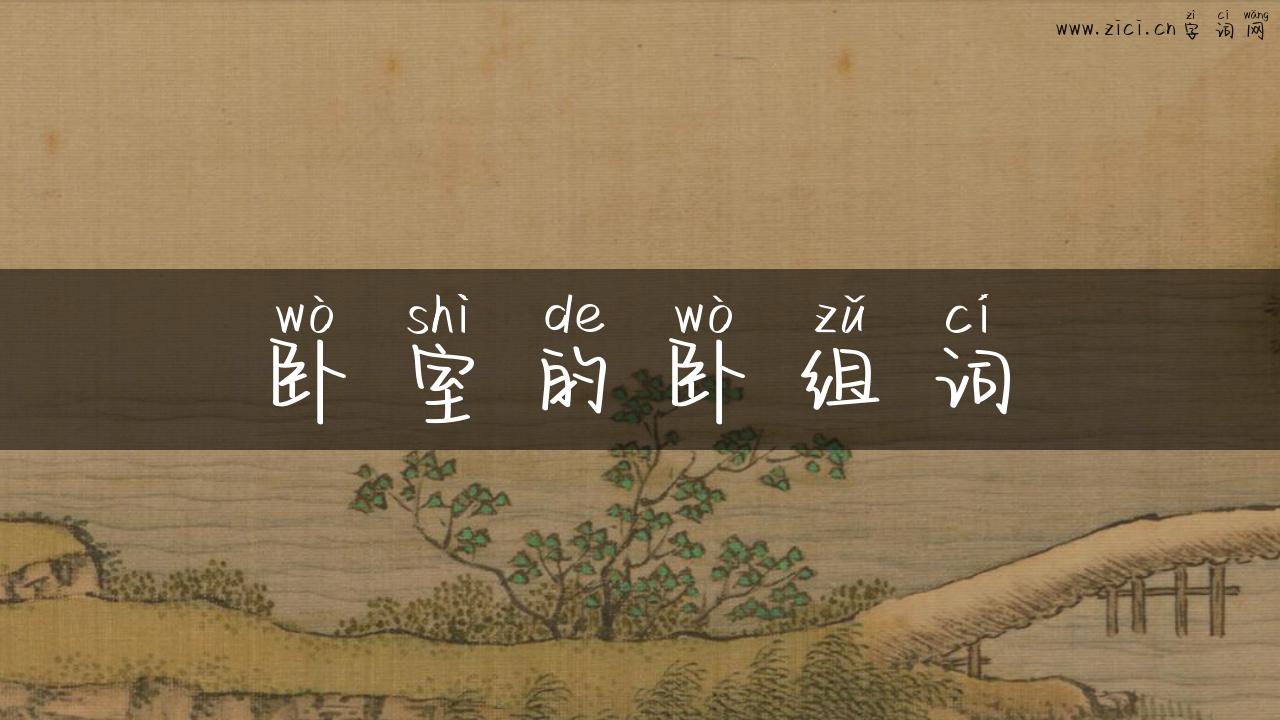 zì cí wǎng
www.zici.cn字词网
wò shì de wò zǔ cí
卧室的卧组词